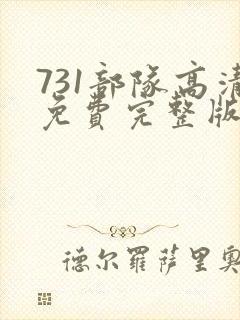 731部隊高清
免費完整版
德尔羅萨里奧